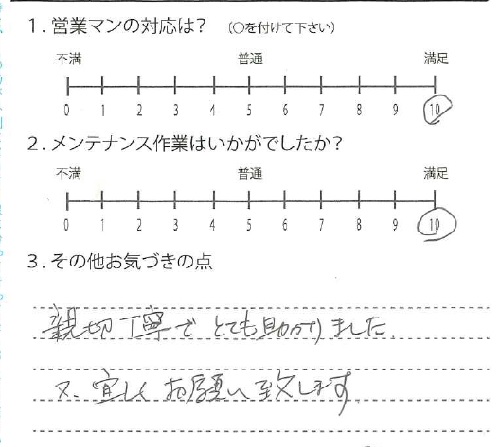 1. 営業マンの対応は? (○を付けて下さい)
不満 普通 満足
0 1 2 3 4 5 6 7 8 9 10
2. メンテナンス作業はいかがでしたか?
不満 普通 満足
0 1 2 3 4 5 6 7 8 9 10
3. その他お気づきの点
親切丁寧でとても助かりました.
又、宜しくお願い致します